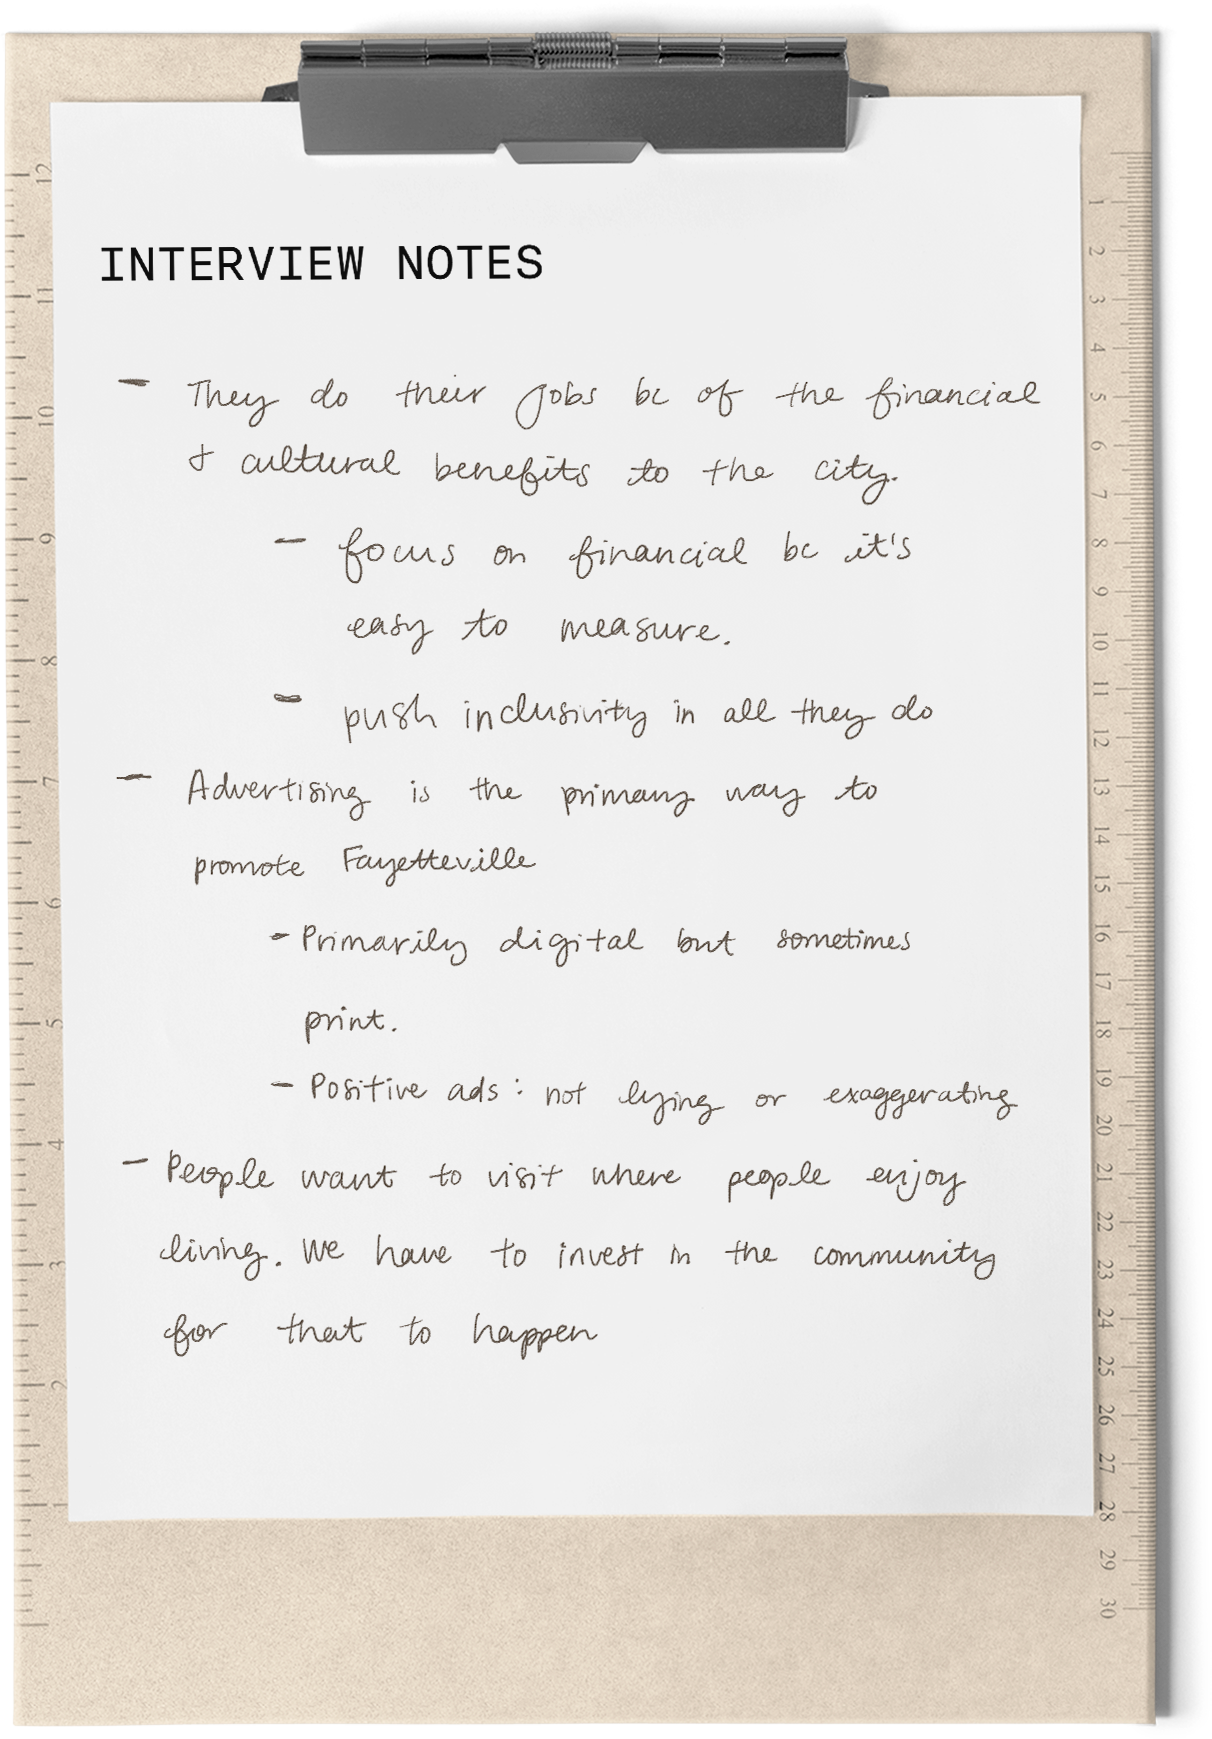 INTERVIEW NOTES
- They do their jobs bc of the financial
& cultural benefits to the city.
- focus on financial bc it's
easy to measure.
- push inclusivity in all they do
- Advertising is the primary way to
promote Fayetteville
- Primarily digital but sometimes
print.
- Positive ads: not lying or exaggerating
- People want to visit where people enjoy
living. We have to invest in the community
for that to happen
12
11
10
9
8
7
6
5
4
3
2
1
1
2
3
4
5
6
7
8
9
10
11
12
13
14
15
16
17
18
19
20
21
22
23
24
25
26
27
28
29
30